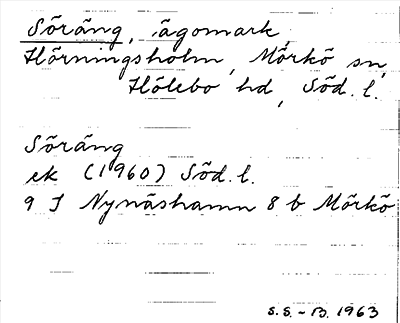 Söräng, ägomark
Hörningsholm, Mörkö sn,
Hölebo hd, Söd. l.
Söräng
ek (1960) Söd. l.
9 I Nynäshamn 8 b Mörkö
S.S.-B. 1963